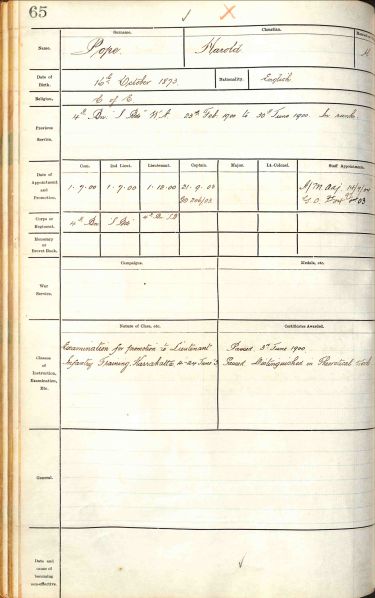 65
Surname.
Christian.
Name.
Pope.
Harold
Date of
Birth.
16th October 1873
Nationality.
English
Religion.
C of E.
Previous
Service.
4th Bn. W.A. 23rd Feb. 1900 to 30th June 1900. In ranks.
Date of
Appointment
and
Promotion.
Com.
2nd Lieut.
Lieutenant.
Captain.
Major.
Lt.-Colonel.
Staff Appointments.
1.7.00
1.7.00
1.12.00
21.9.03
Corps or
Regiment.
4th Bn
Honorary
or
Brevet Rank.
Campaigns.
Medals, etc.
War
Service.
Nature of Class, etc.
Certificates Awarded.
Classes
of
Instruction,
Examination,
Etc.
Examination for promotion to Lieutenant
Passed 3rd June 1900
Infantry Training, Karrakatta
Passed Distinguished in Theoretical
General.
Date and
cause of
becoming
non-effective.